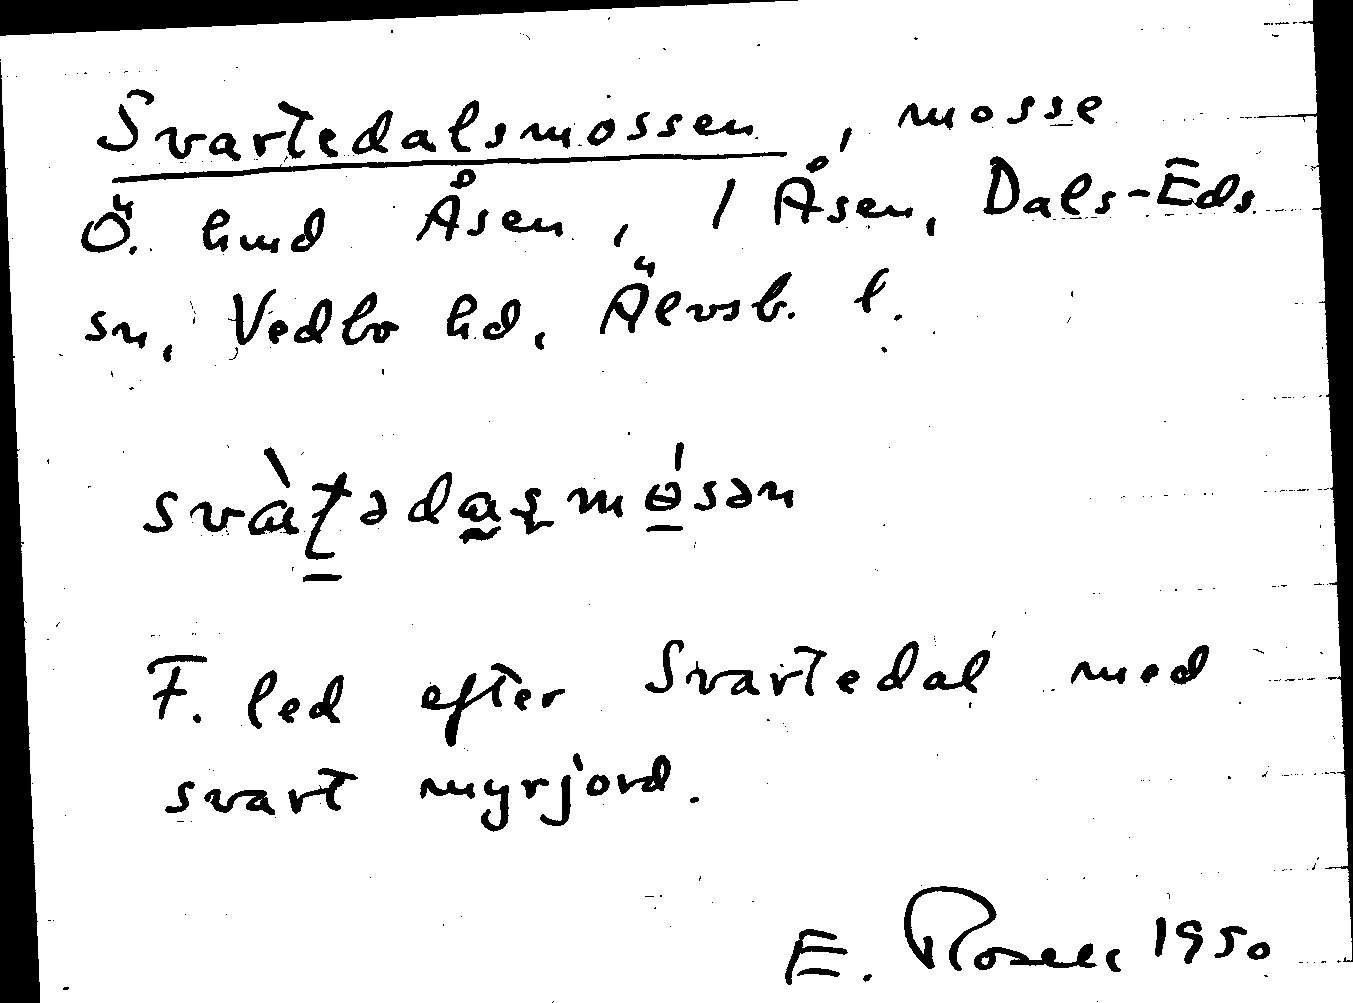 Svartedalsmossen, mosse
Ö. hmd Åsen, / Åsen, Dals-Eds
sn, Vedbo hd, Älvsb. l.
F. led efter Svartedal med
svart myrjord.
E. Rosell 1950